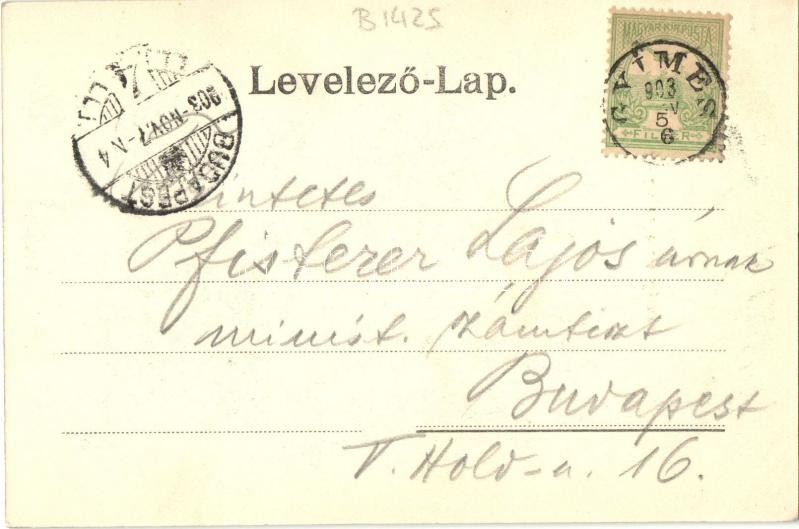 B1425
MAGYAR KIR. POSTA
Levelező-Lap.
GYIMES
903
NOV
5
6
FILLÉR
BUDAPEST
903-NOV.7-N4
Tintetes
Pfisterer Lajos úrnak
minist. számtiszt
Budapest
V. Hold-u. 16.